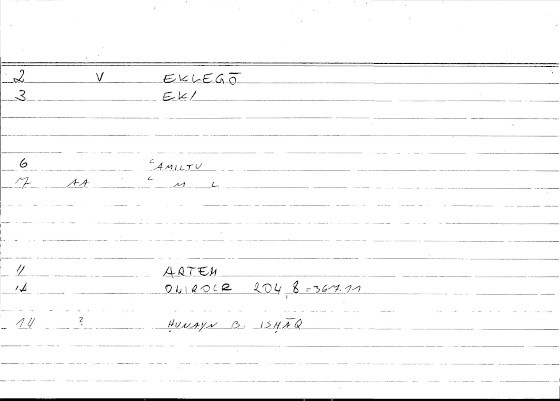 2 V EKLEGŌ
3 EKI
6 ʿAMILTU
7 AA ʿ M L
11 ARTEM
12 ONIROCR 204,8=367.11
14 ? ḤUNAYN B. ISḤĀQ